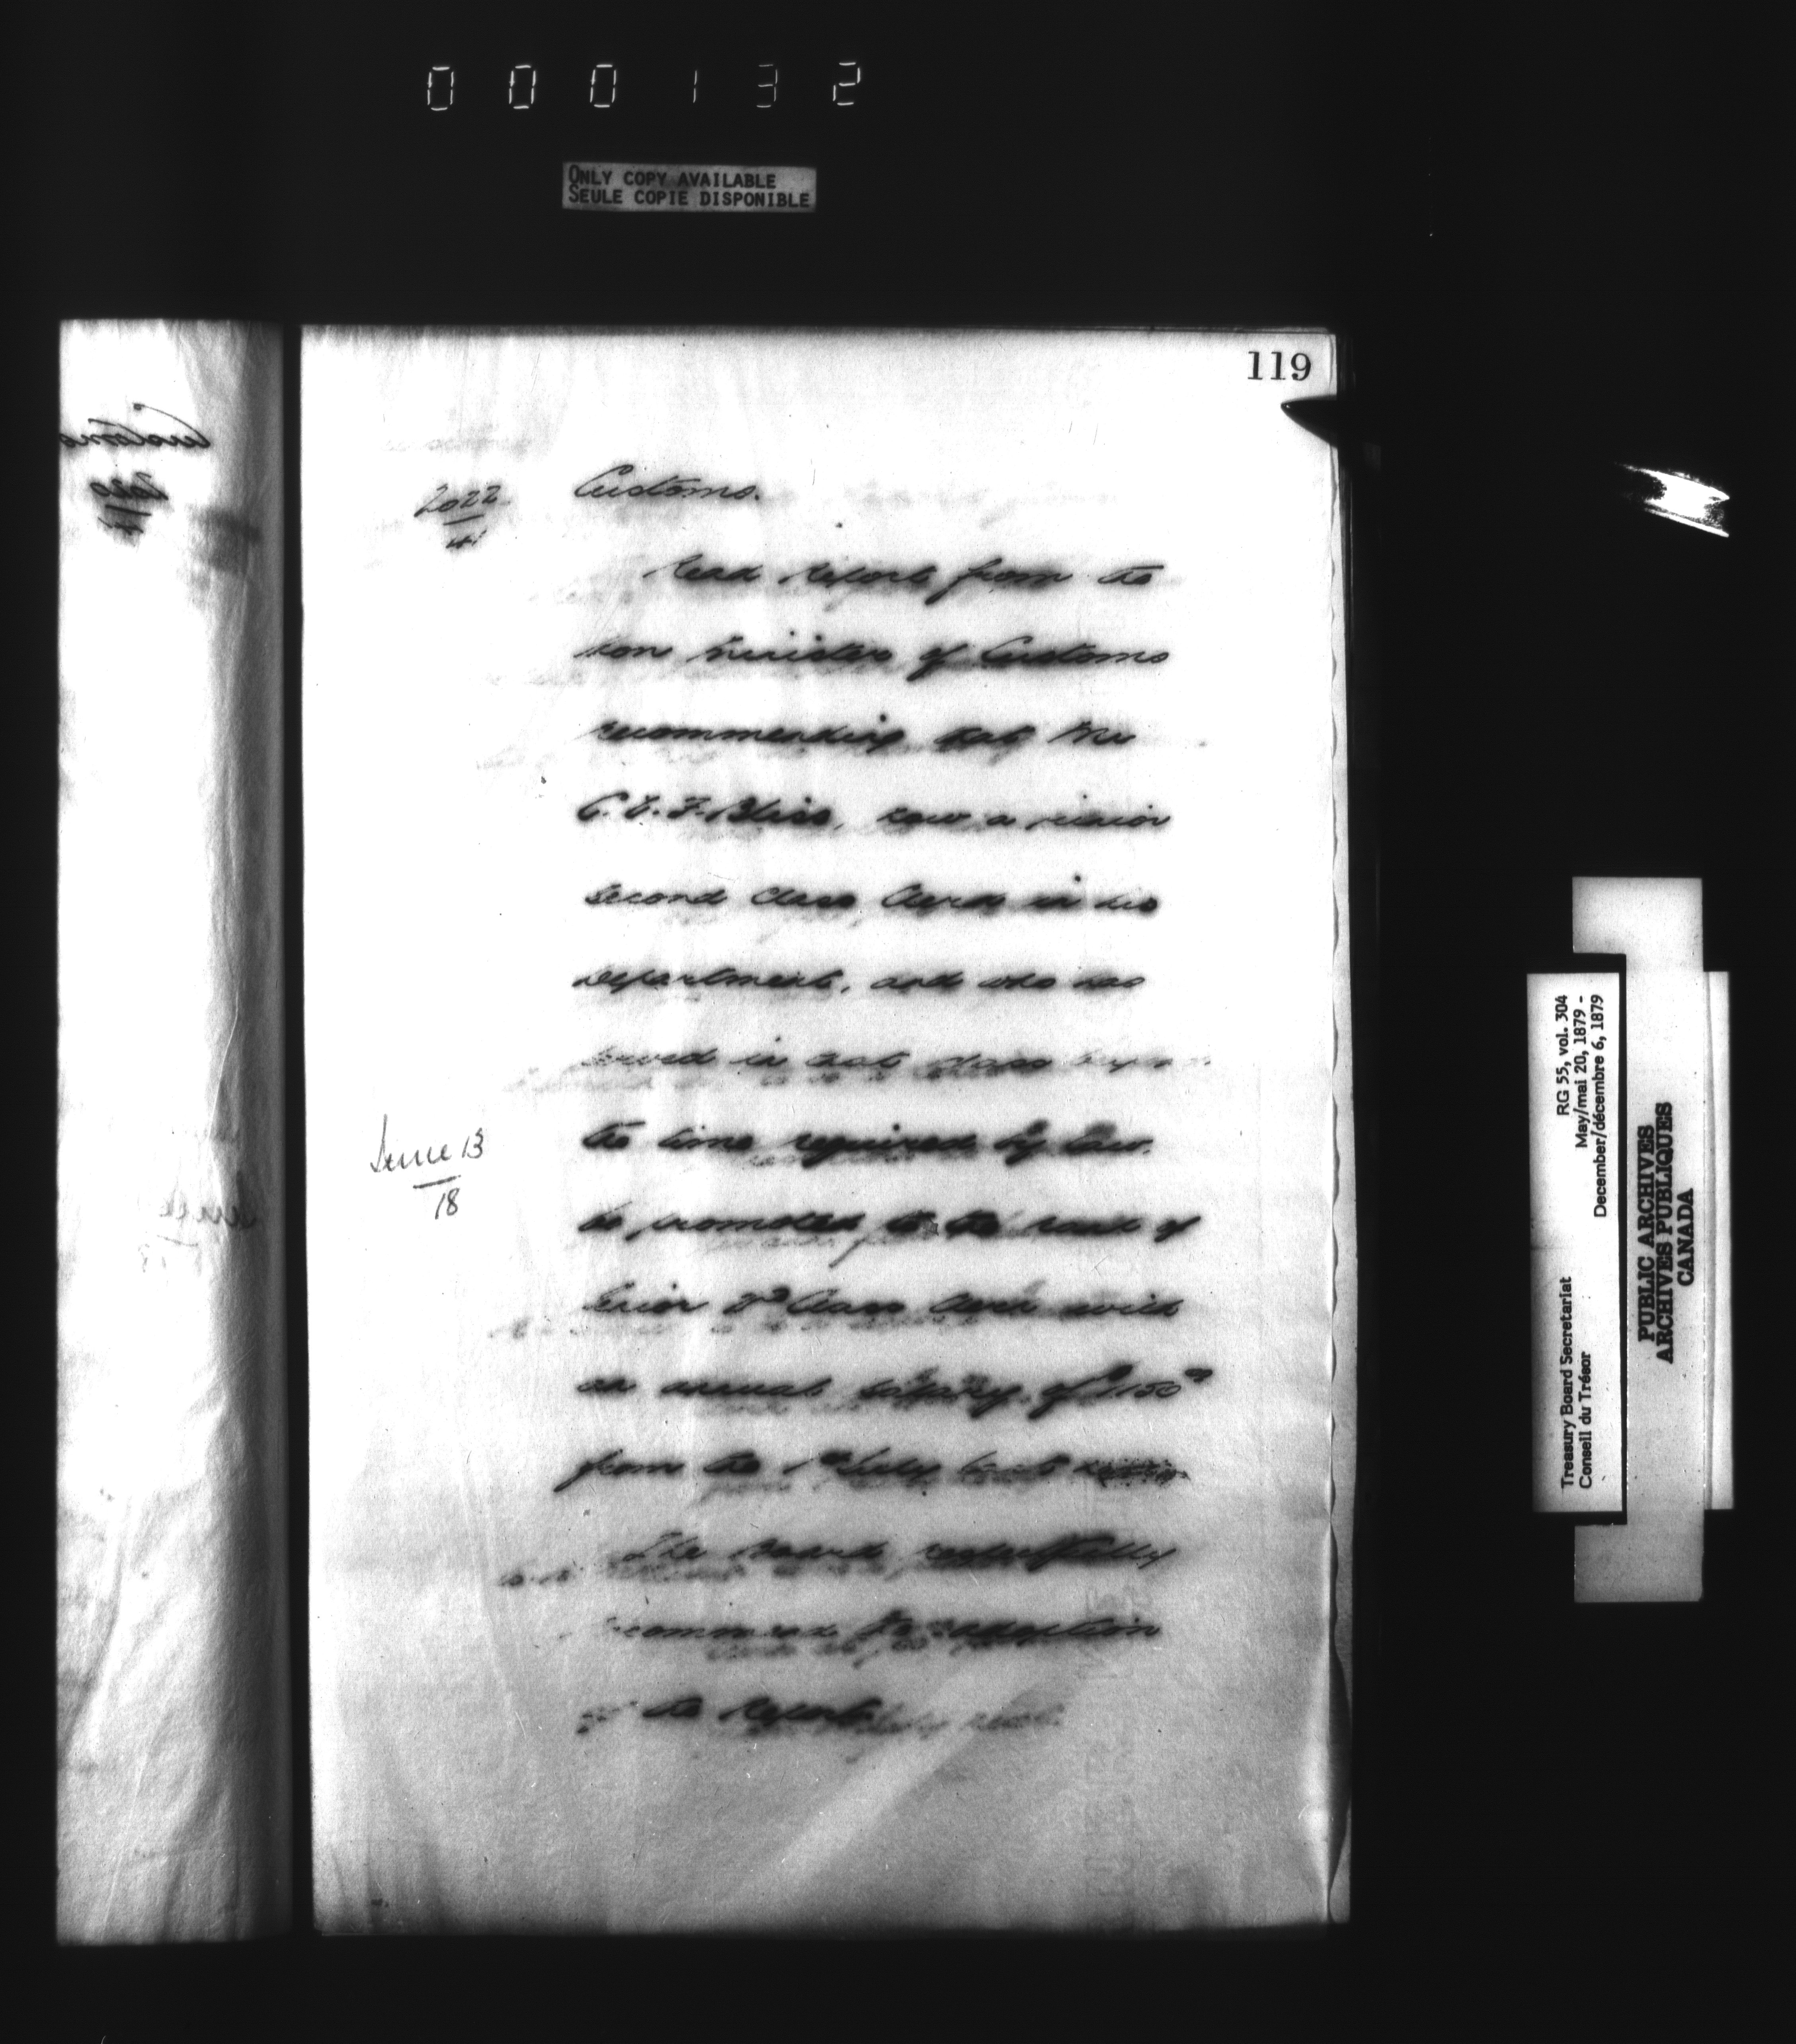 000132
ONLY COPY AVAILABLE
SEULE COPIE DISPONIBLE
119
2022
Customs.
Read report from the
Hon Minister of Customs
recommending that Mr
C. E. F. Bliss, now a junior
second class Clerk in his
Department, and who has
served in that class
the time required by law,
be promoted to the rank of
Senior 2nd Class Clerk with
an annual salary of $1150
from the 1st July
The Board respectfully
recommend the adoption
of the Report
June 13
18
RG 55, vol. 304
May/mai 20, 1879 -
December/décembre 6, 1879
Treasury Board Secretariat
Conseil du Trésor
PUBLIC ARCHIVES
ARCHIVES PUBLIQUES
CANADA